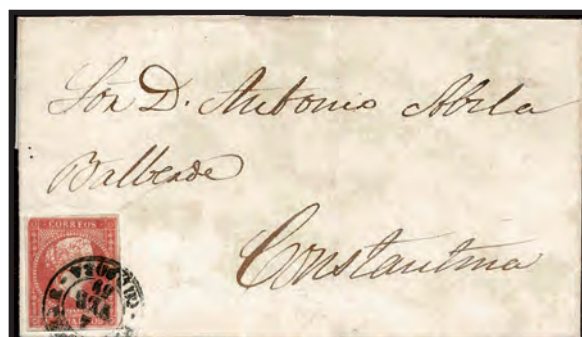 Sor D. Antonio Abela
Balberde
Constantina
CORREOS